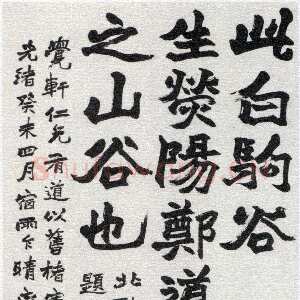 此白駒谷
生熒陽鄭道
之山谷也
北
題
覺軒仁兄有道以舊楮
光緒癸未四月宿雨乍晴